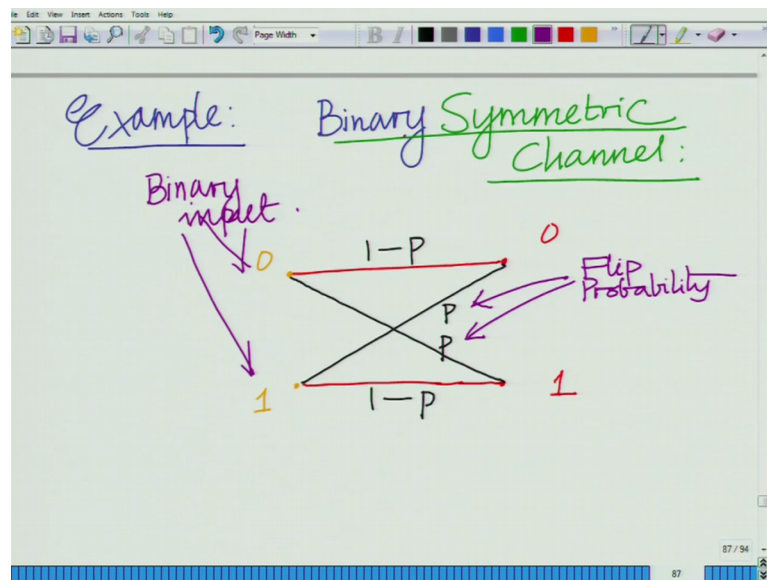 le Edit View Insert Actions Tools Help
Page Width
B I
Example: Binary Symmetric
Channel:
Binary
input.
0 1-P 0
Flip
Probability
P
P
1 1-P 1
87 / 94
87